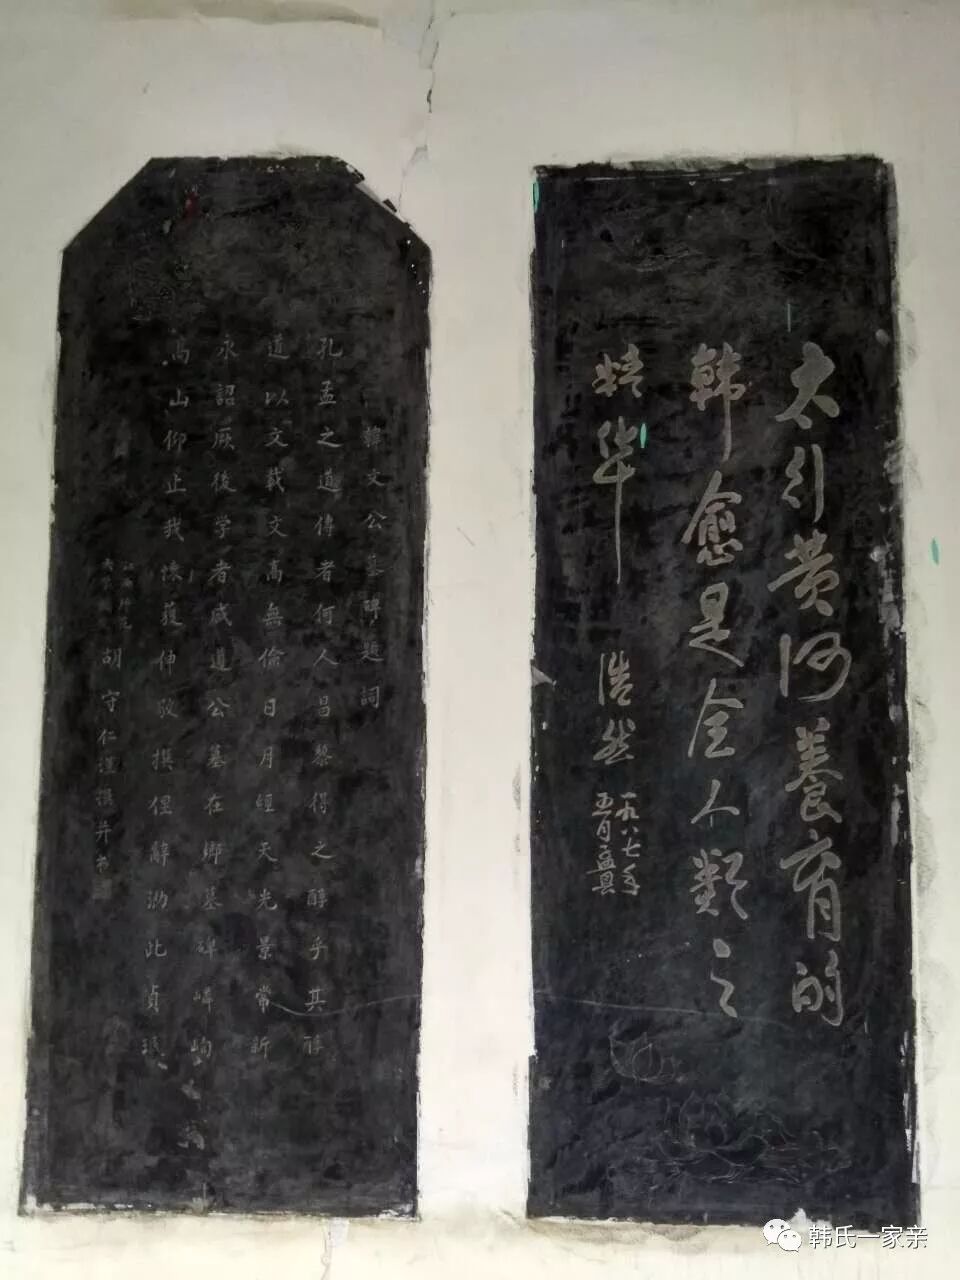 太行黄河養育的
韩愈是全人類之
精华
浩然
一九八七年
五月孟县
韓文公墓碑題詞
孔孟之道傳者何人昌黎得之醇乎其醇
道以文載文高無倫日月經天光景常新
永詔厥後学者咸遵公墓在鄉墓碑嶙峋
高山仰止我懷獲伸敬撰俚辭泐此貞珉
胡守仁謹撰并书
韩氏一家亲